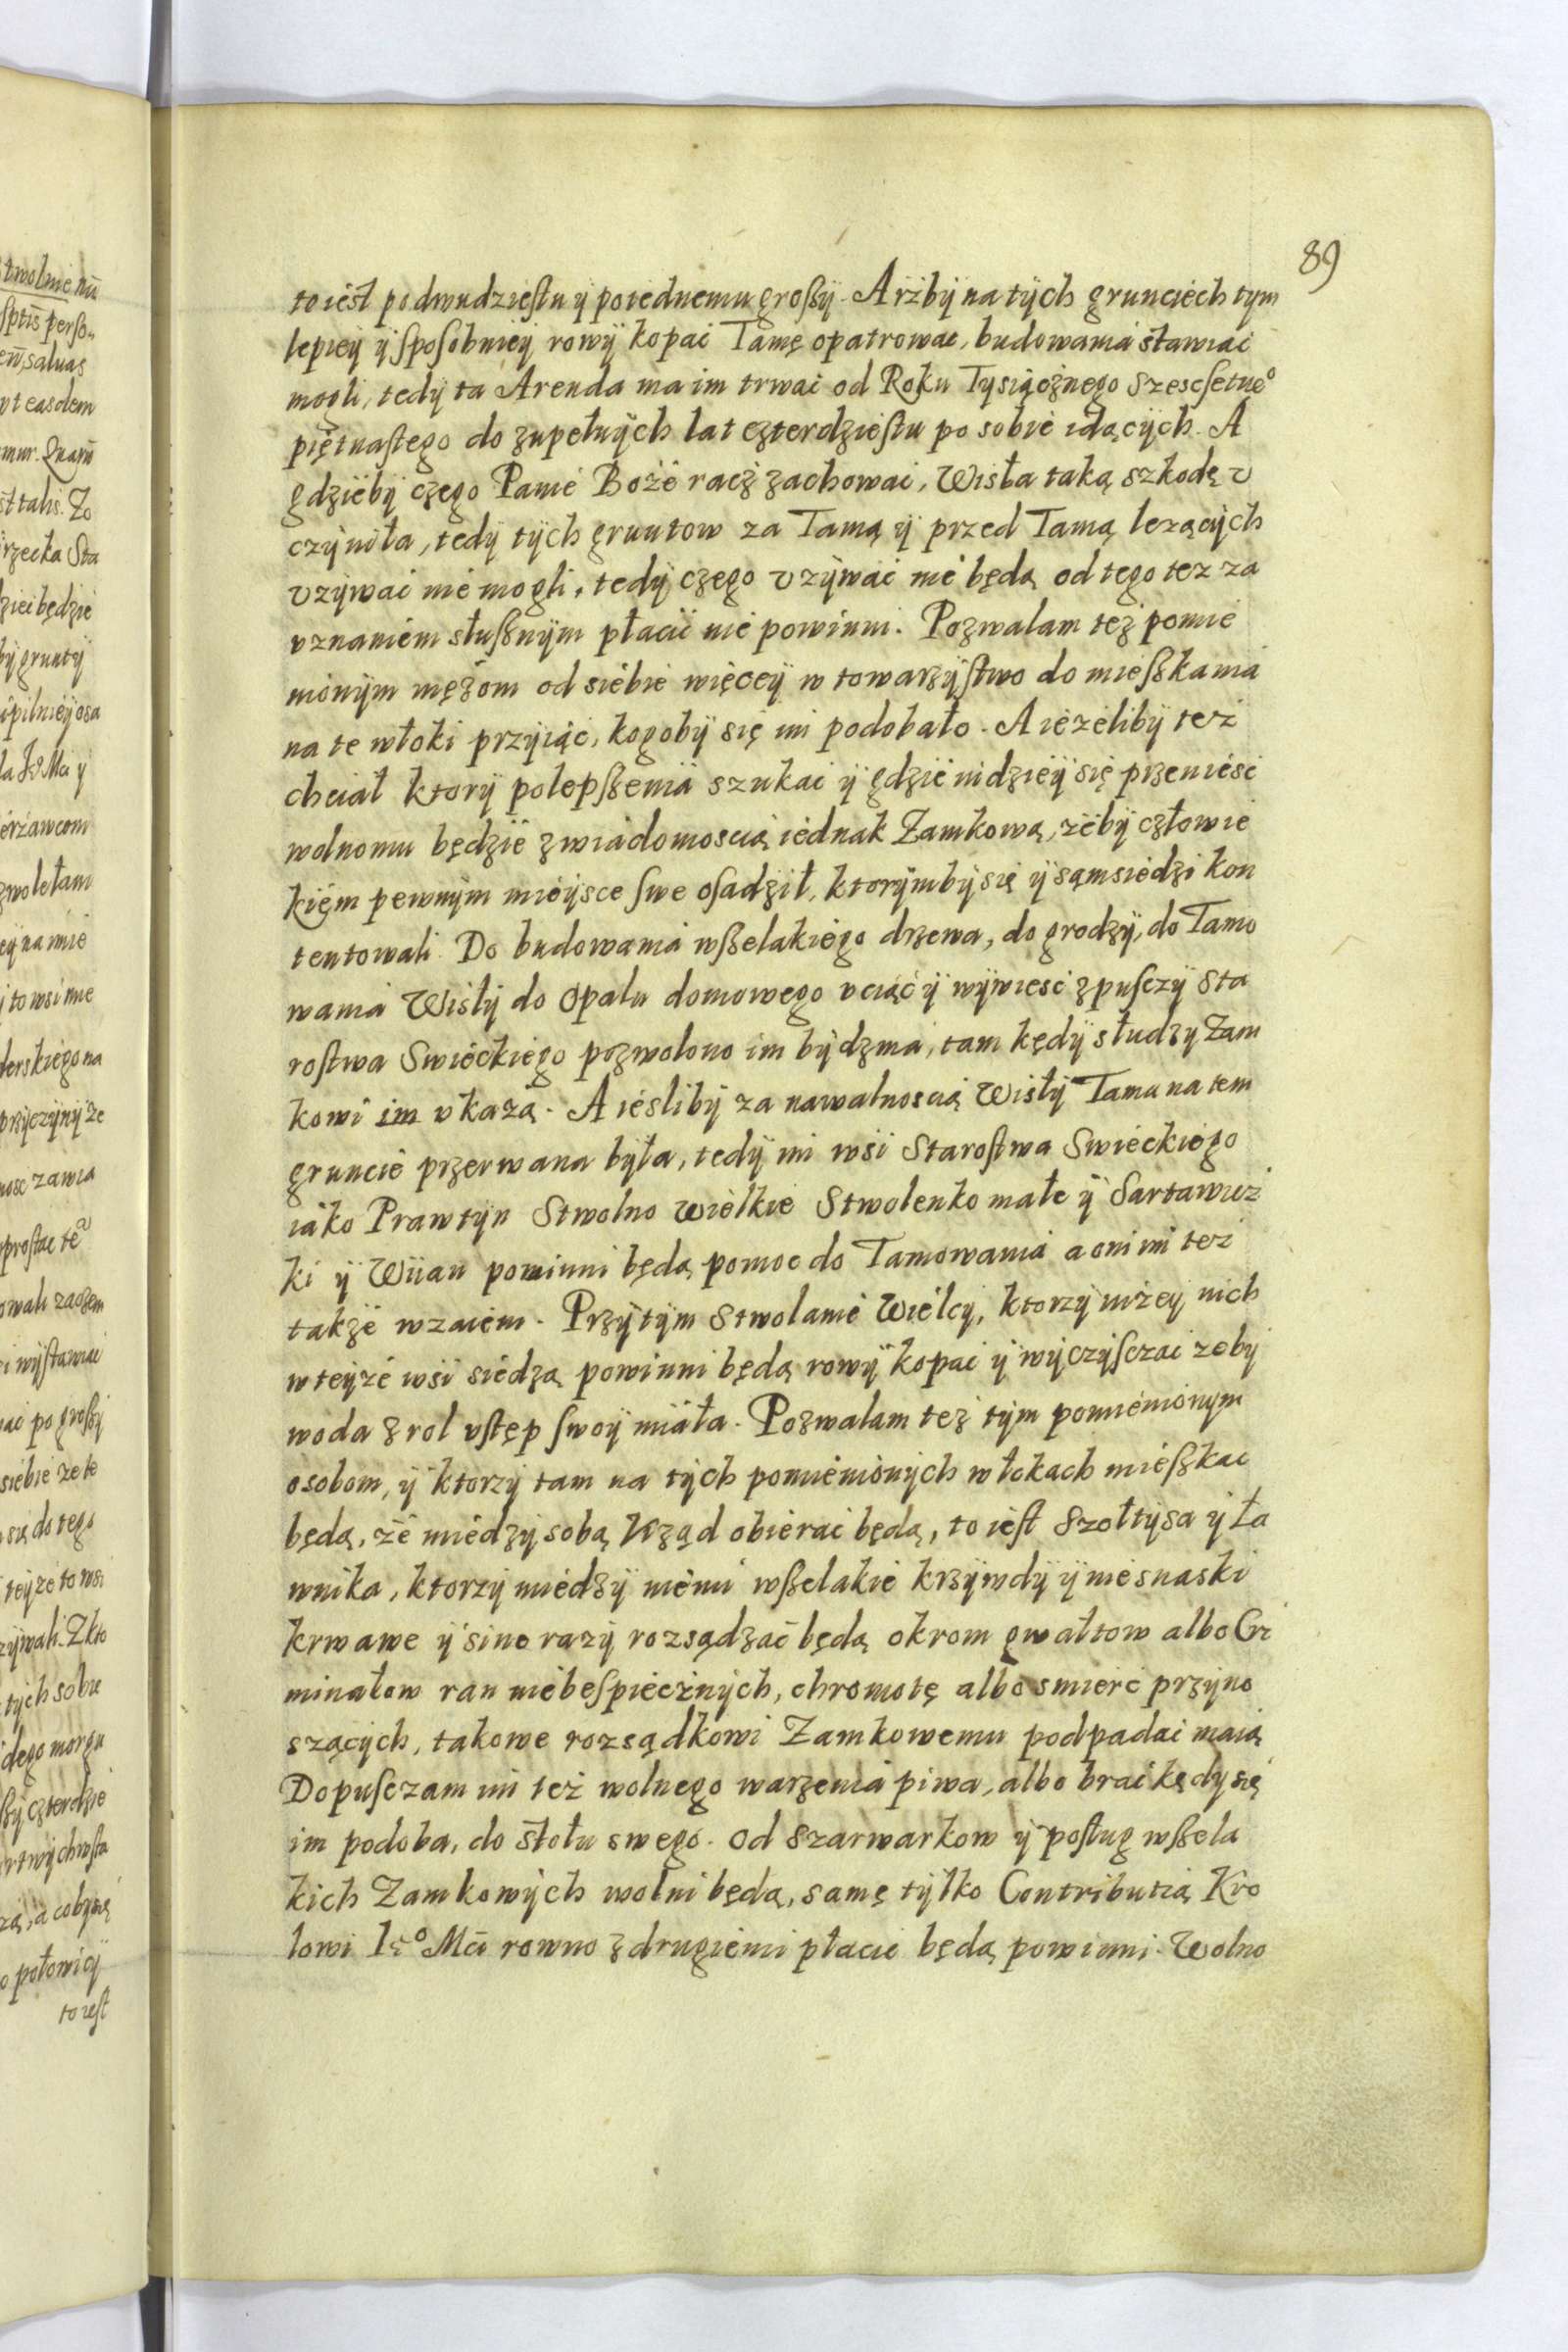 89
to iest podwudziestu y poiednemu großy. A rzby na tych grunciech tym
lepiey y sposobniey rowy kopać Tamę opatrować, budowania stawiać
mogli, tedy ta Arenda ma im trwać od Roku Tysiącznego szescsetneᵒ
piętnastego do zupełnych lat czterdziestu po sobie idących. A
gdzieby czego Panie Boże racz zachować, Wisła taką szkodę v
czyniła, tedy tych gruntow za Tamą y przed Tamą lezących
vzywać nie mogli, tedy czego vzywać nie będą od tego tez za
vznaniem słußnym płacić nie powinni. Pozwalam też pomie
nionym mężom od siebie więcey w towarzystwo do mießkania
na te włoki przyiąć, kogoby się im podobało. A iezeliby tez
chciał ktory polepßenia szukać y gdzie indziey się przeniesć
wolnomu będzie z wiadomoscią iednak Zamkową, żeby człowie
kiem pewnym mieysce swe osadził, ktorymby się y sąmsiedzi kon
tentowali. Do budowania wßelakiego drzewa, do grodzy, do Tamo
wania Wisły do Opału domowego vciąć y wywiesć z pusczy Sta
rostwa Swieckiego pozwolono im bydz ma, tam kędy słudzy Zam
kowi im vkażą. A iesliby za nawalnoscią Wisły Tama na tem
gruncie przerwana była, tedy im wsi Starostwa Swieckiego
iako Prawtyn Stwolno wielkie Stwolenko małe y Sartawicz
ki y Wiiau powinni będą pomoc do Tamowania a oni im też
także wzaiem. Przytym Stwolanie Wielcy, ktorzy niżey nich
w teyże wsi siedzą powinni będą rowy kopać y wyczysczać zeby
woda z rol vstęp swoy miała. Pozwalam też tym pomienionym
osobom, y ktorzy tam na tych pomienionych włokach mießkac
będą, że miedzy sobą Vrząd obierać będą, to iest Szołtysa y Ła
wnika, ktorzy miedzy niemi wßelakie krzywdy y niesnaski
krwawe y sine razy rozsądzać będą okrom gwałtow albo Cri
minałow ran niebespiecznych, chromotę albo smierć przyno
szących, takowe rozsądkowi Zamkowemu podpadać maią
Dopusczam im też wolnego warzenia piwa, albo brać kędy się
im podoba, do stołu swego. Od szarwarkow y posług wßela
kich Zamkowych wolni będą, samę tylko Contributią Kro
lowi Ieᵒ Mci rowno z drugiemi płacić będą powinni. Wolno